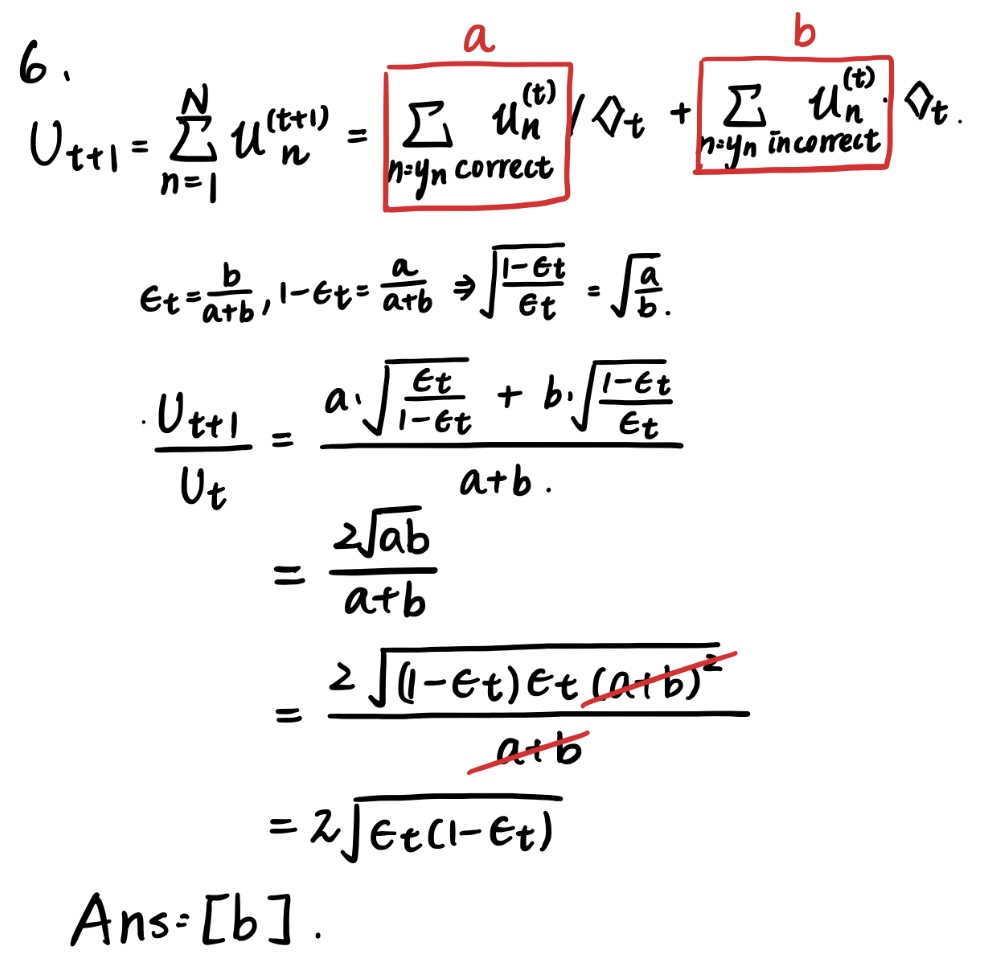 a b
6.
U_{t+1} = \sum_{n=1}^{N} u_n^{(t+1)} = \sum_{n=y_n correct} u_n^{(t)} / ◊_t + \sum_{n=y_n incorrect} u_n^{(t)} · ◊_t.
ϵ_t = \frac{b}{a+b}, 1-ϵ_t = \frac{a}{a+b} ⇒ \sqrt{\frac{1-ϵ_t}{ϵ_t}} = \sqrt{\frac{a}{b}}.
· \frac{U_{t+1}}{U_t} = \frac{a·\sqrt{\frac{ϵ_t}{1-ϵ_t}} + b·\sqrt{\frac{1-ϵ_t}{ϵ_t}}}{a+b}.
= \frac{2\sqrt{ab}}{a+b}
= \frac{2\sqrt{(1-ϵ_t)ϵ_t(a+b)^2}}{a+b}
= 2\sqrt{ϵ_t(1-ϵ_t)}
Ans=[b].